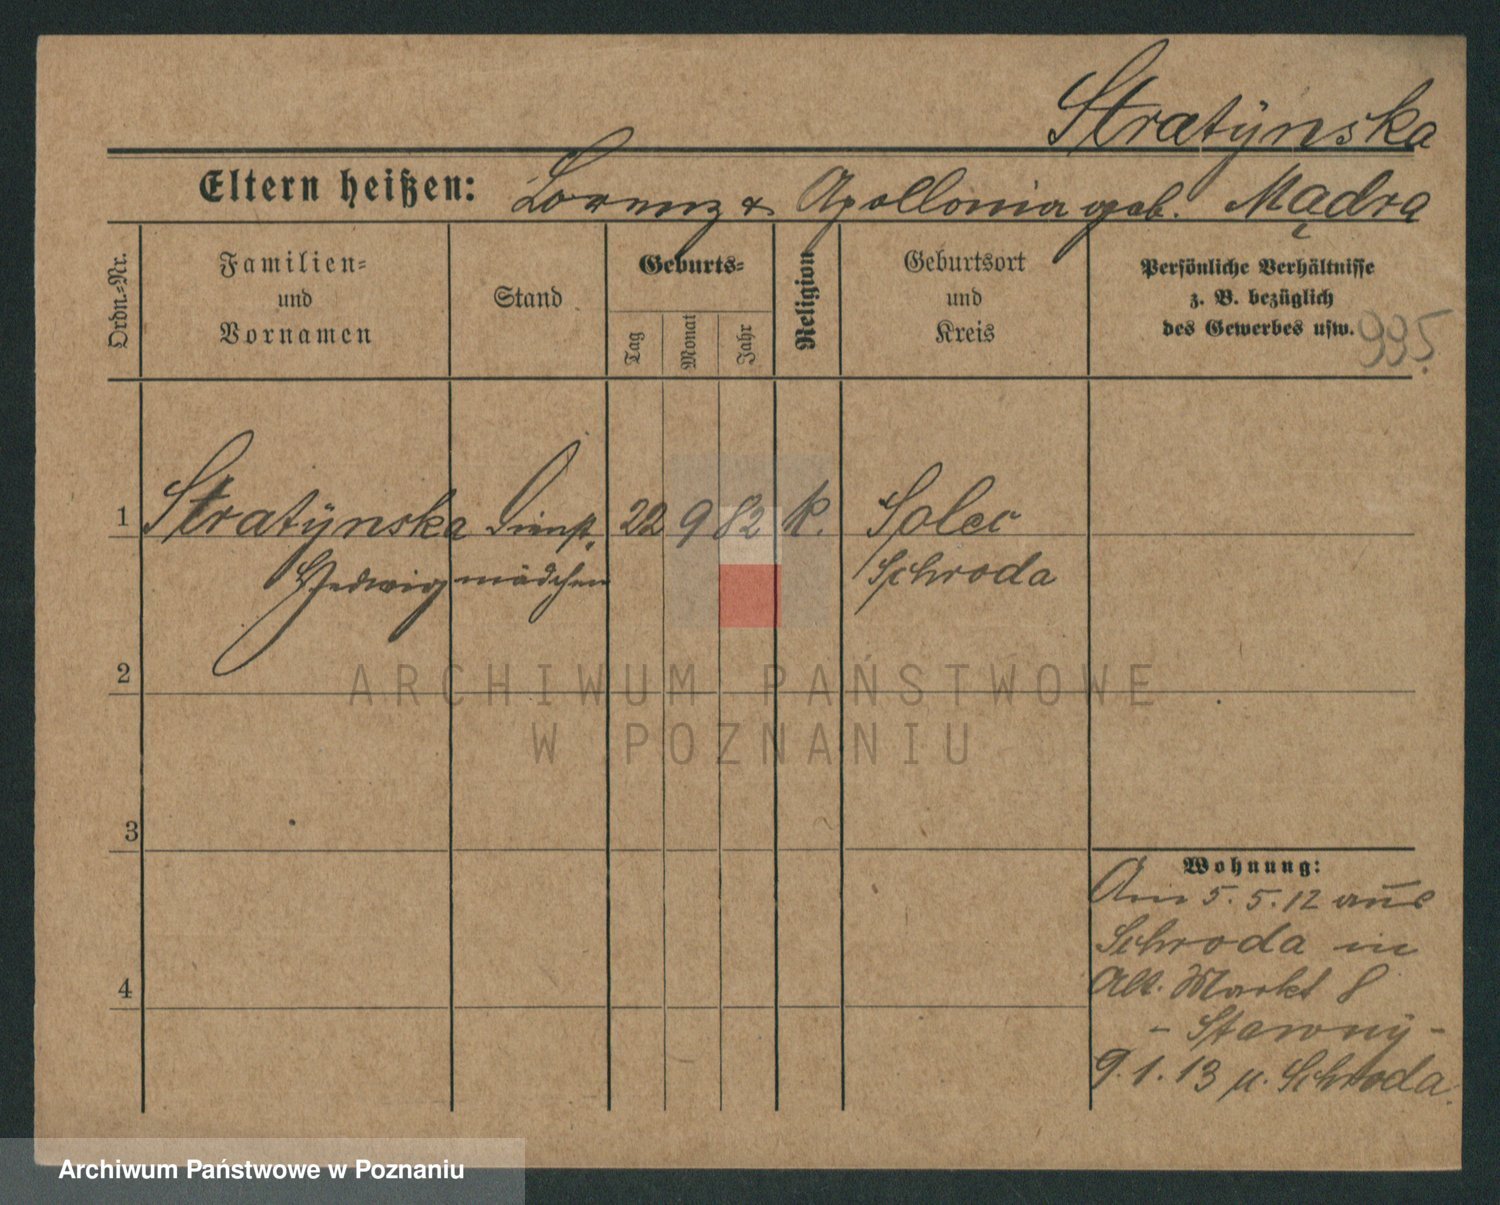 Stratÿnska
Eltern heißen: Lorenz & Apollonia geb. Mądra
Ordn.-Nr.
Familien-
und
Vornamen
Stand
Geburts-
Tag
Monat
Jahr
Religion
Geburtsort
und
Kreis
Persönliche Verhältnisse
z. B. bezüglich
des Gewerbes usw.
995.
1 Stratÿnska Dienst- 22 9 82 k. Solec
Hedwig mädchen Schroda
2
ARCHIWUM PAŃSTWOWE
W POZNANIU
3
Wohnung:
Am 5.5.12 aus
Schroda in
4
Alt. Markt 8
- Stawnÿ -
9.1.13 n. Schroda.
Archiwum Państwowe w Poznaniu